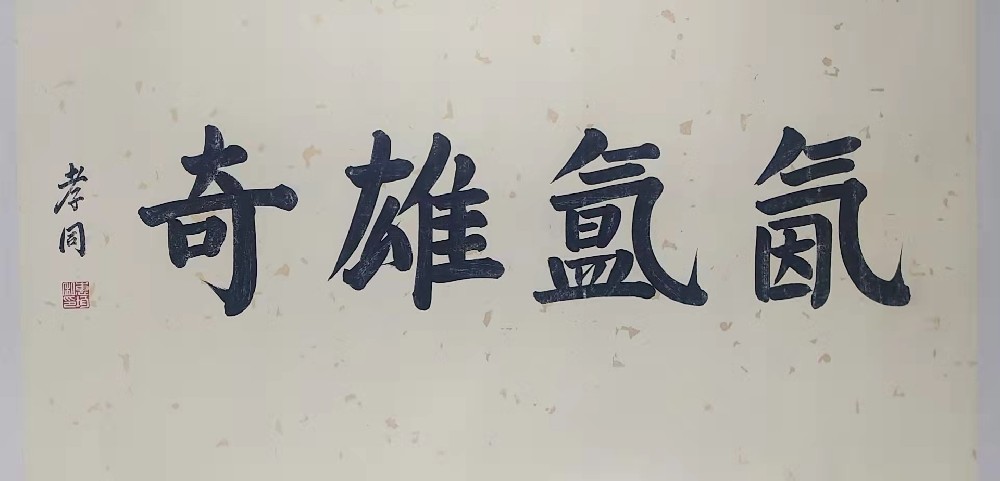 氤氲雄奇
孝同